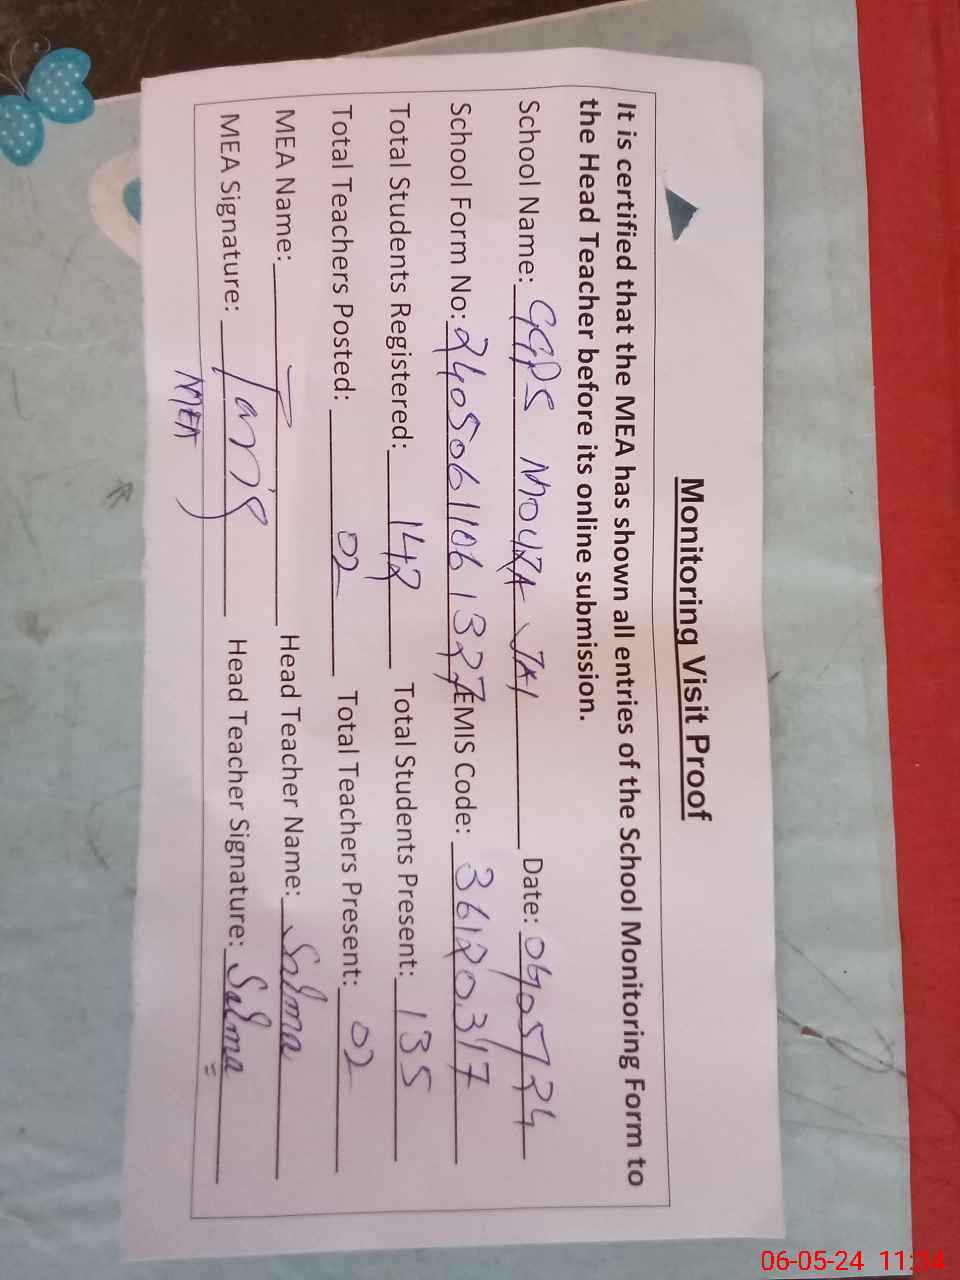 Monitoring Visit Proof
It is certified that the MEA has shown all entries of the School Monitoring Form to
the Head Teacher before its online submission.
School Name: GGPS MOUZA JAI Date: 06/05/24
School Form No: 24050611061327 EMIS Code: 36120317
Total Students Registered: 142 Total Students Present: 135
Total Teachers Posted: 02 Total Teachers Present: 02
MEA Name: Head Teacher Name: Salma
MEA Signature: Tariq Head Teacher Signature: Salma
MEA
06-05-24 11:34